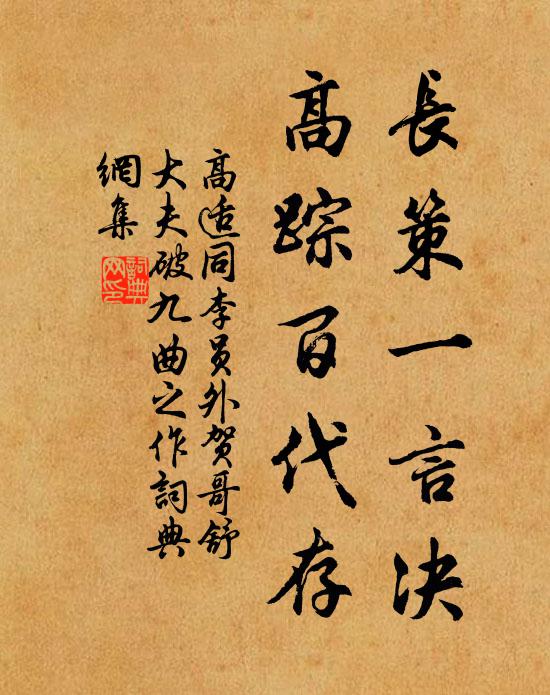 長策一言决
高踪百代存
高适同李员外贺哥舒
大夫破九曲之作詞典
網集
詞典
网印